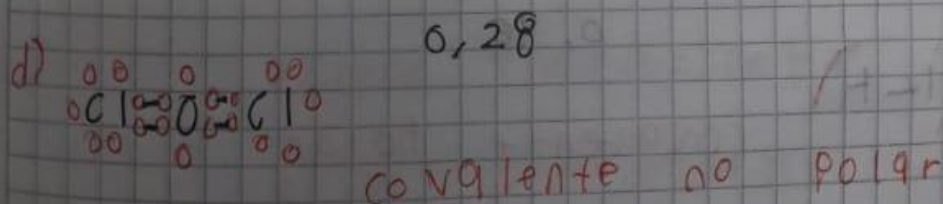 0,28
d) Cl O Cl
covalente no polar